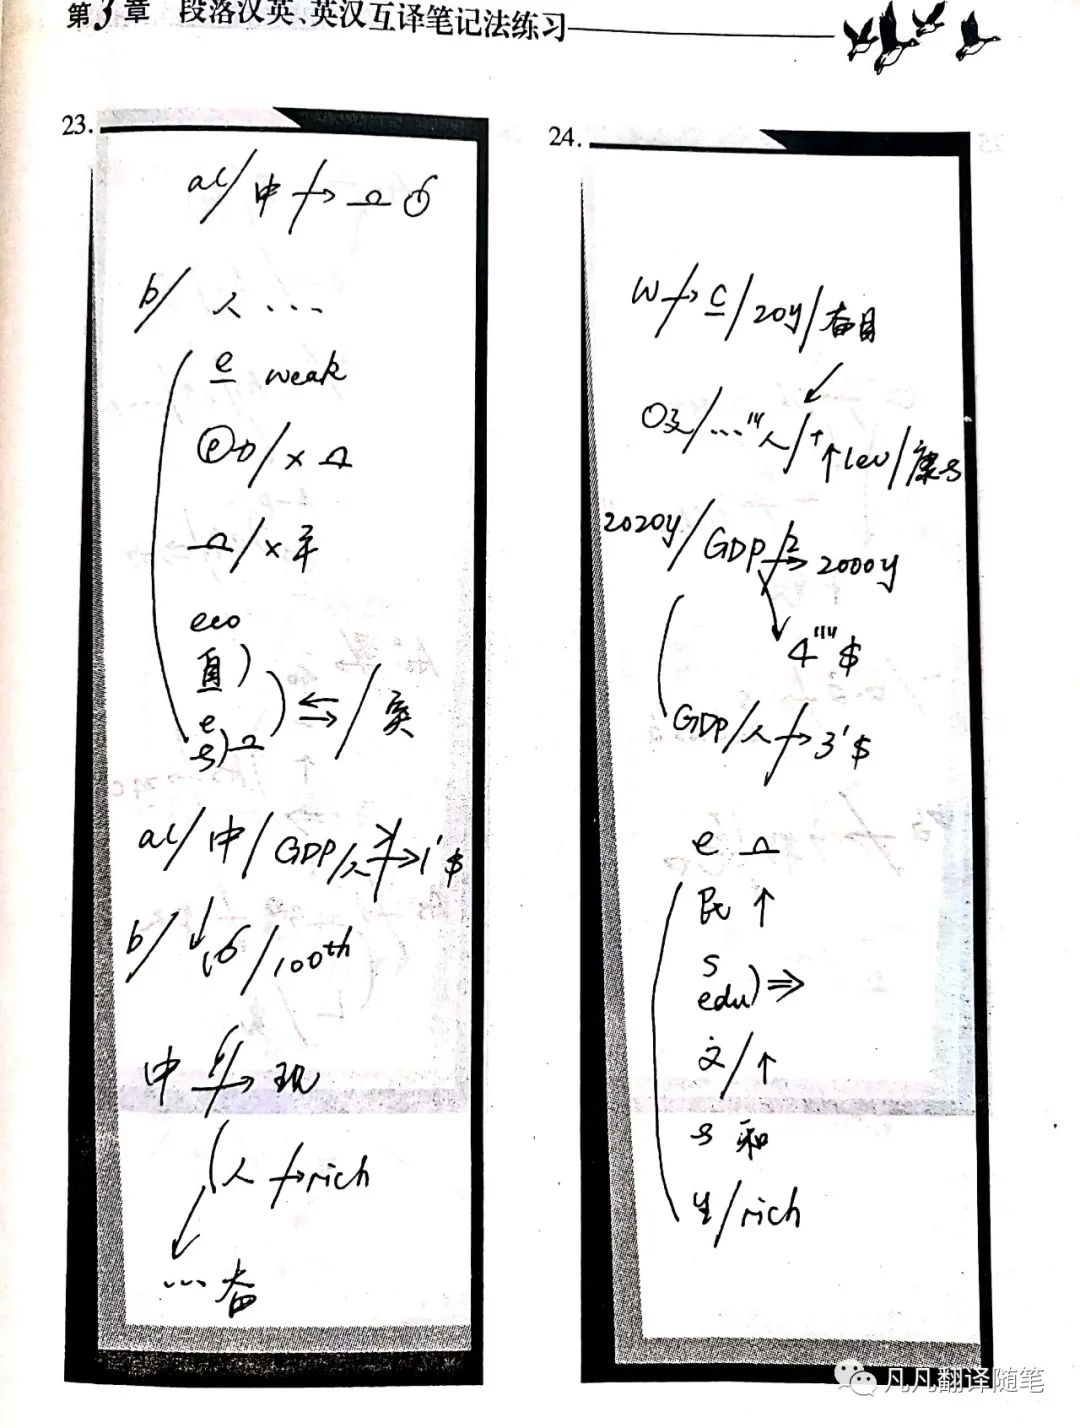 第3章 段落汉英、英汉互译笔记法练习
23.
al/中
b/人...
e weak
/×
/×平
eco
e
/突
al/中/GDP/人→1'$
b/↓ /100th
中→现
人→rich
...奋
24.
W→C/20y/奋目
/..."'人/+↑lev/康
2020y/GDP 2→2000y
4""$
GDP/人→3'$
e
民↑
s
edu)⇒
文/↑
和
生/rich
凡凡翻译随笔